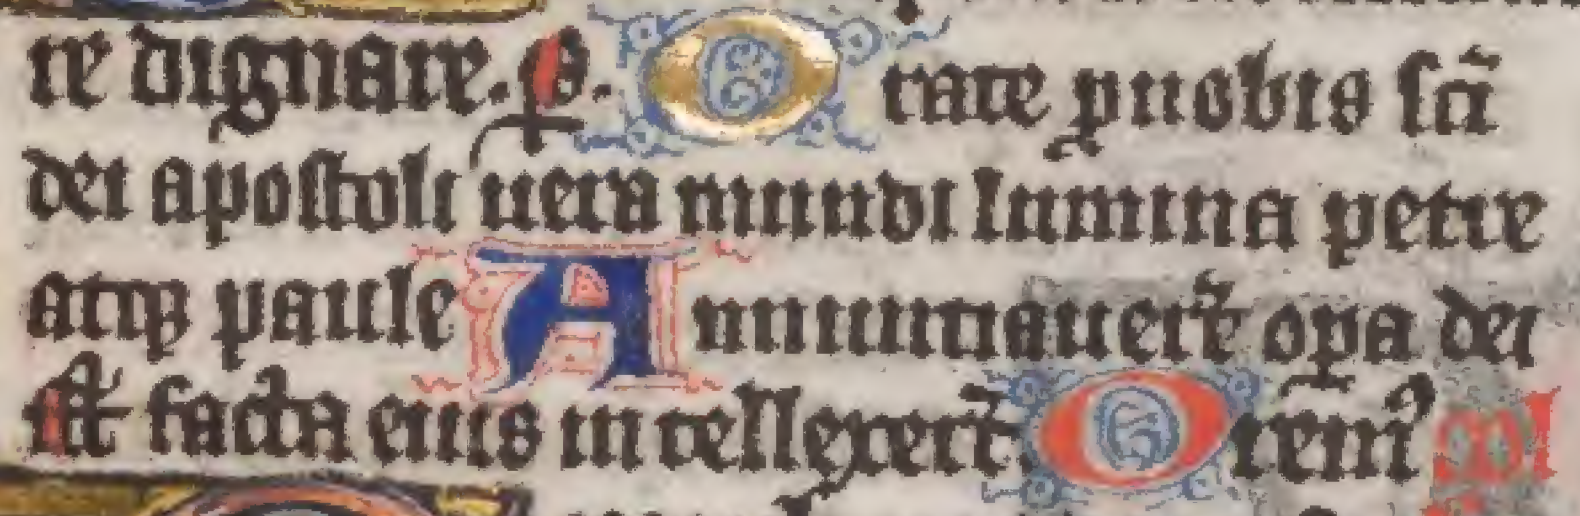 re dignare. P. Orate ꝓ nobis sc̄i
dei apostoli uera mundi lumina petre
atqꝫ paule Annunciauer̄t oꝑa dei
Et facta eius intellexer̄t. Orem᷒